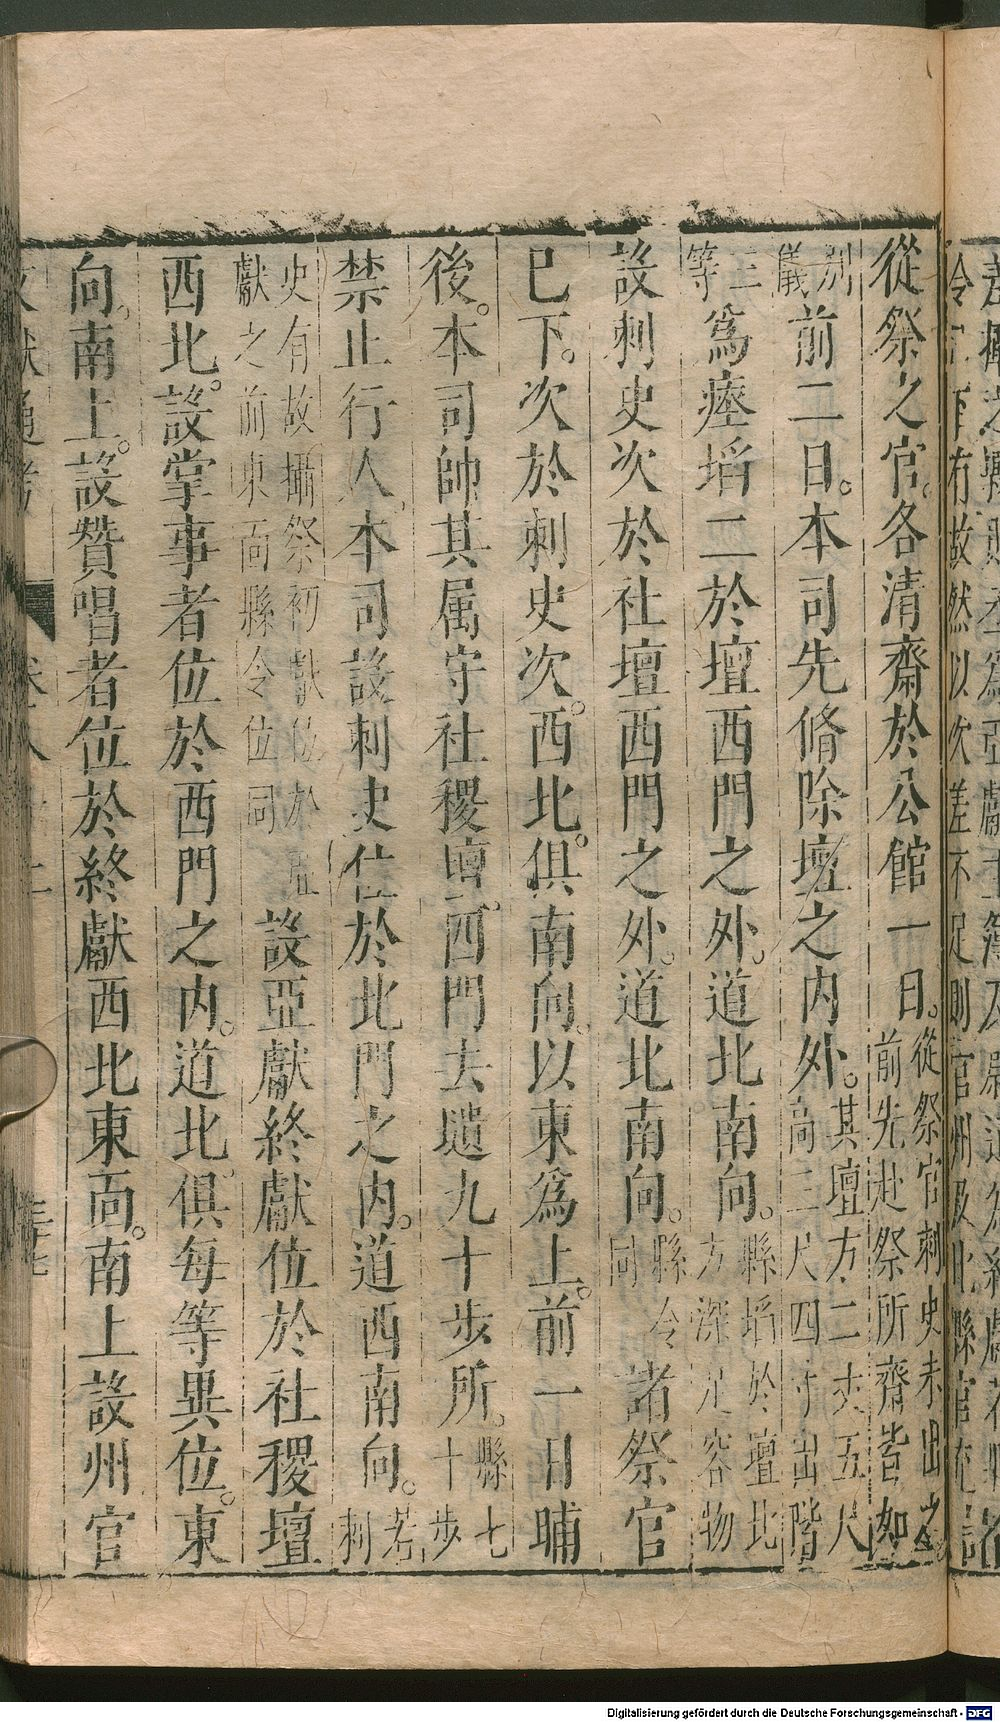 從祭之官。各清齋於公館一日。從祭官刺史未出之前先赴祭所齋皆如
別儀前二日。本司先脩除壇之内外。其壇方二丈五尺高三尺四寸出階
三等為瘞埳二於壇西門之外。道北南向。縣埳於壇北方深足容物
設刺史次於社壇西門之外。道北南向。縣令同諸祭官
已下。次於刺史次。西北。俱南向。以東為上。前一日晡
後。本司帥其属守社稷壇。西門去壝九十步所。縣七十步
禁止行人。本司設刺史位於北門之内。道西南向。若刺
史有故攝祭初獻位於亞獻之前東面縣令位同設亞獻終獻位於社稷壇
西北。設掌事者位於西門之内。道北。俱每等異位。東
向。南上。設贊唱者位於終獻西北東面。南上設州官
Digitalisierung gefördert durch die Deutsche Forschungsgemeinschaft - DFG